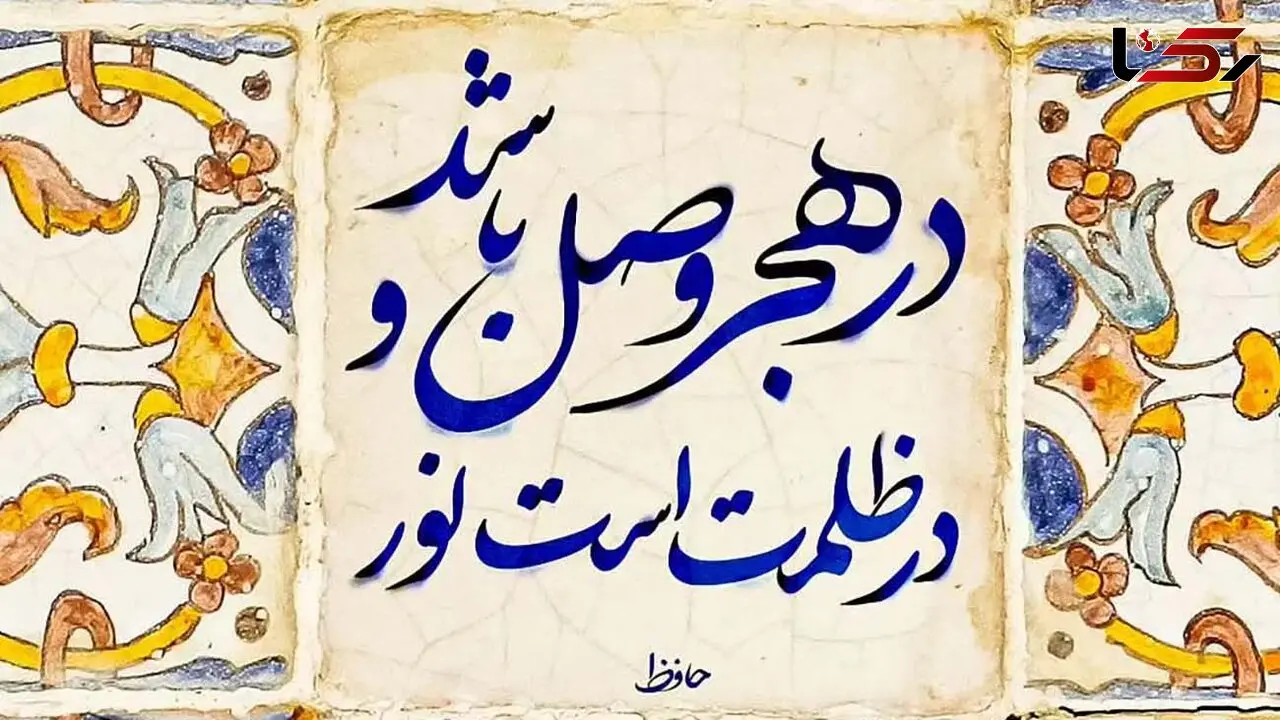 رکنا
در هجر وصل باشد و
در ظلمت است نور
حافظ